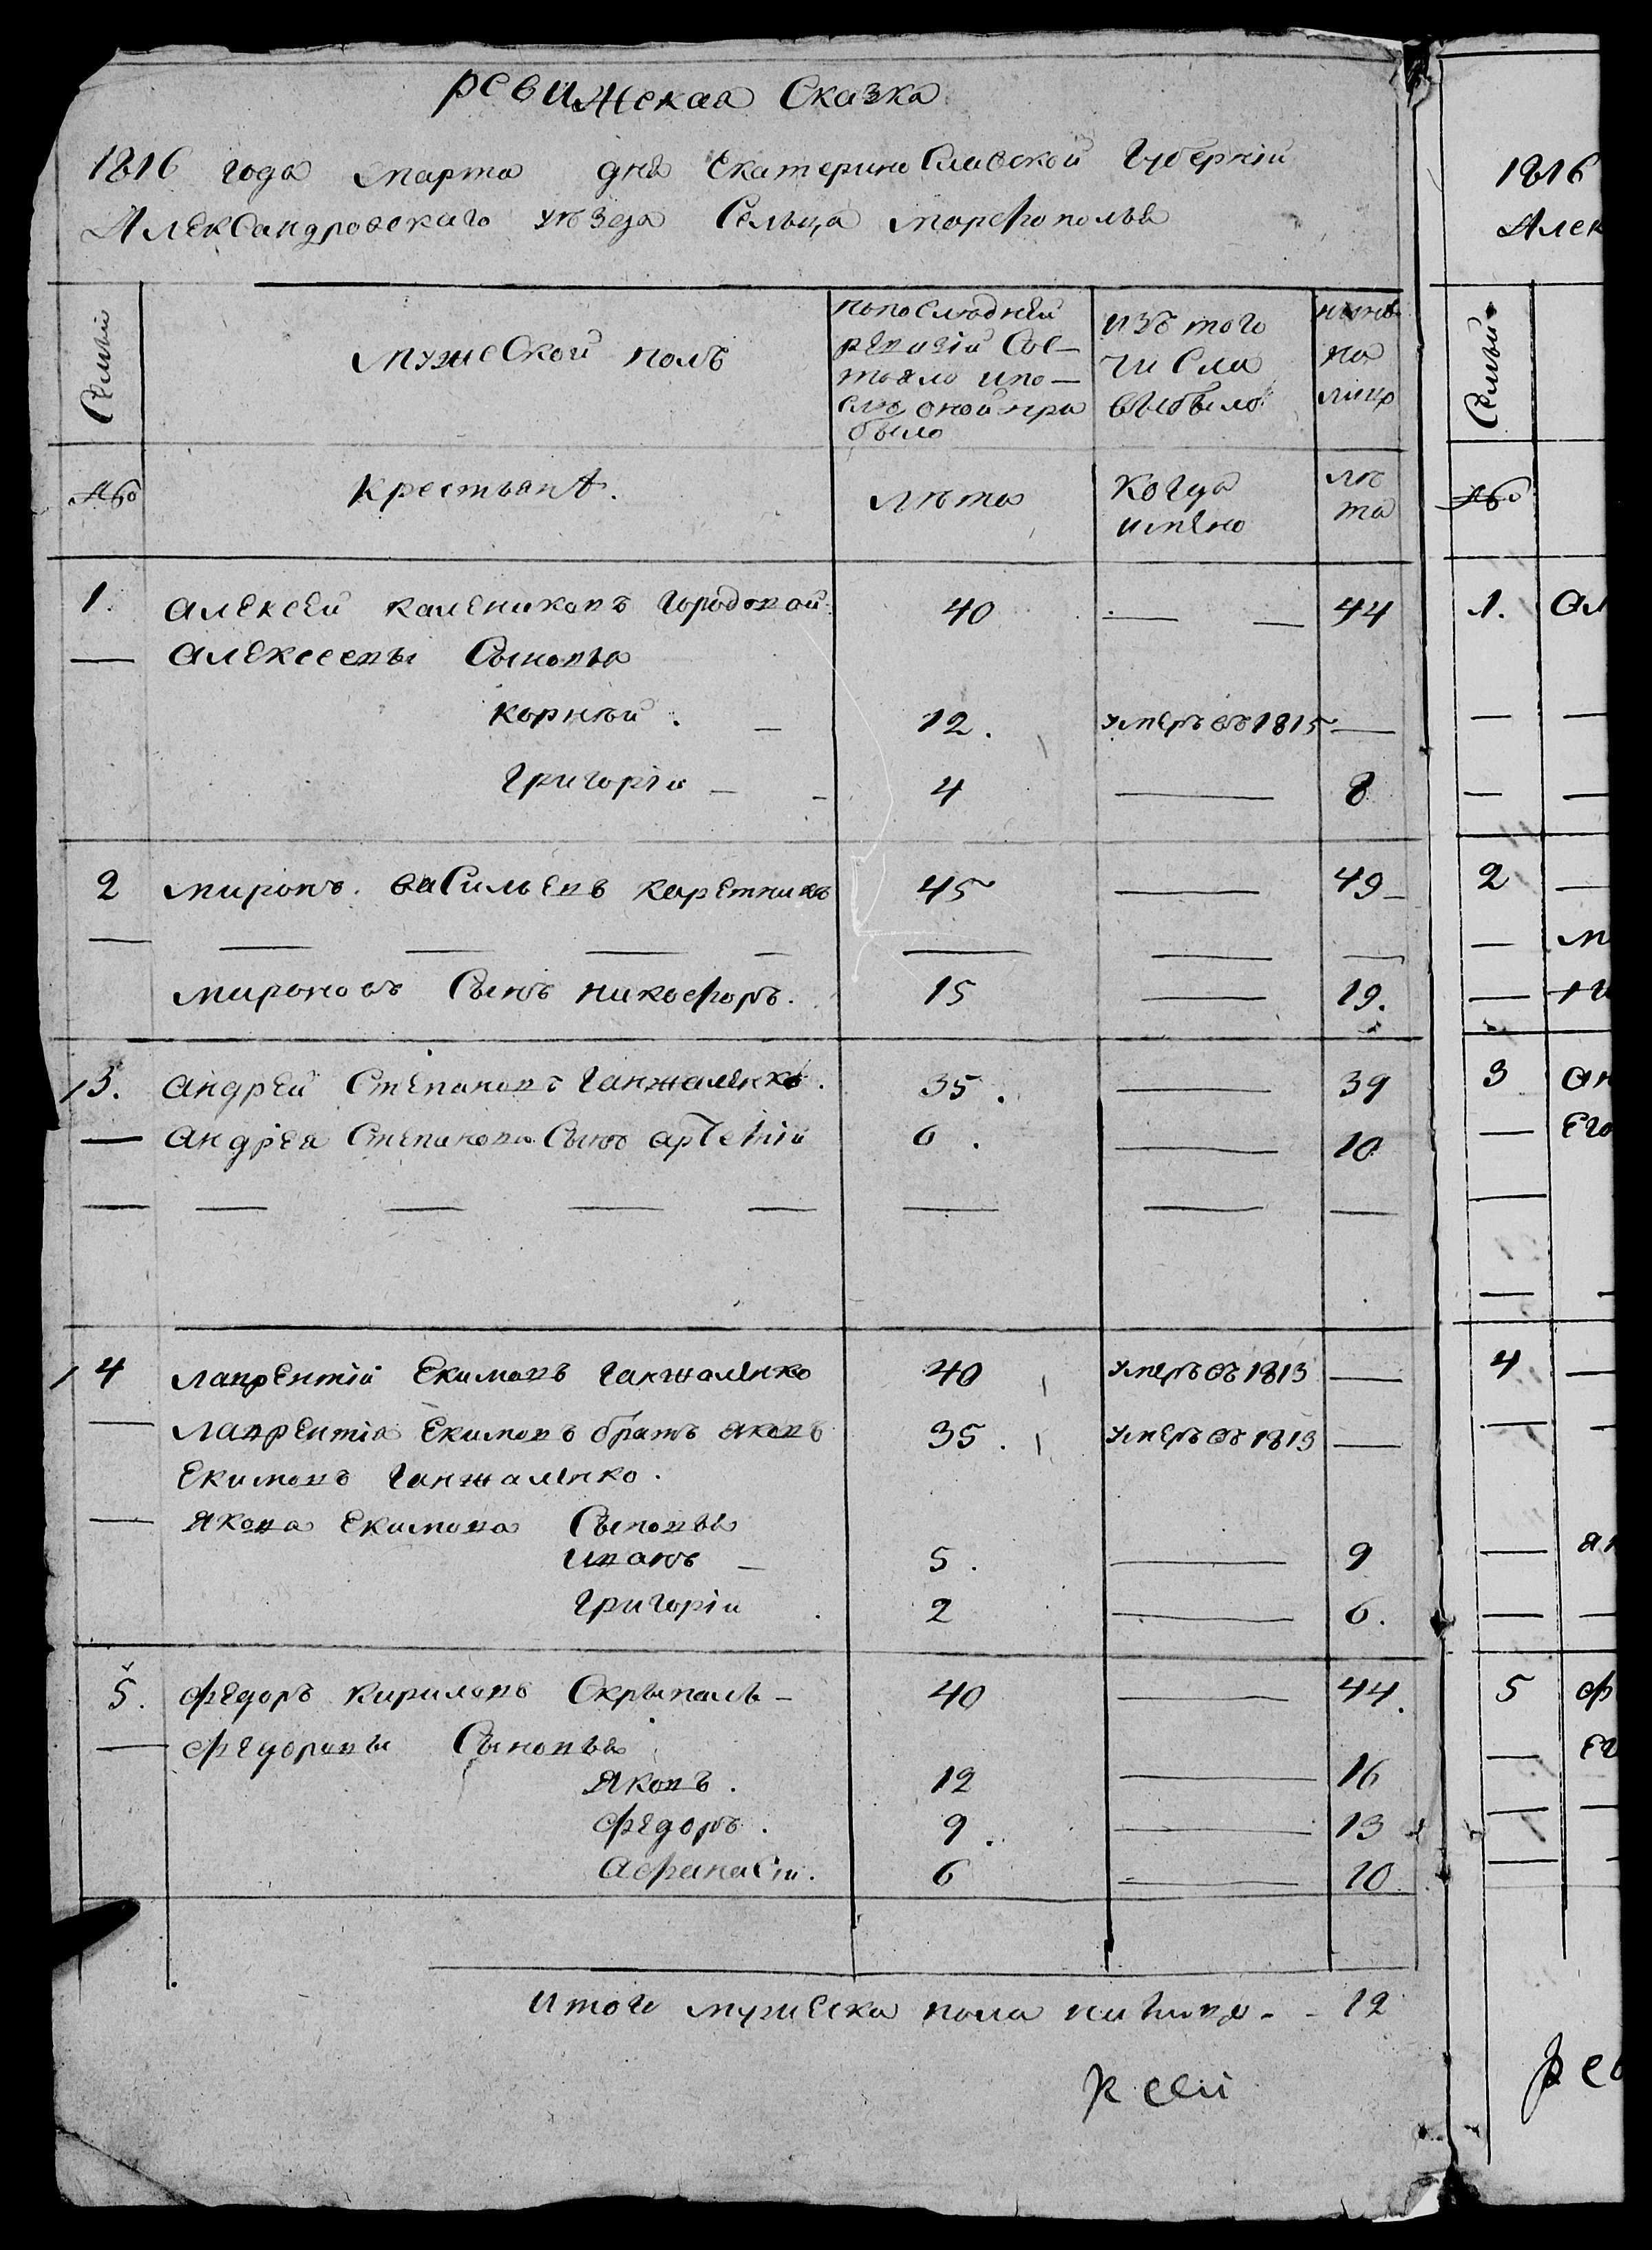 ревижская Сказка
1816 года марта дня ЕкатериноСлавской Губерніи
АлекСандровскаго уѣзда Сельца марфополья
Семьи
мужеСкой полъ
попоСлѣдней
ревизіи Сос-
тояло ипо-
слѣ оной при
было
изъ того
чиСла
выбыло
нынѣ
на
лицо
№
крестьянѣ.
лѣта
когда
имяно
лѣ
та
1. алексей калениковъ городовой 40 — — 44
— алексеевы Сыновья
корнѣй. — 12. умеръ въ 1815 —
григорій — — 4 — 8
2 миронъ ваСильевъ каретникъ 45 — 49 —
— — — — — — — —
мироновъ Сынъ никофоръ. 15 — 19.
3. андрей Степановъ ганжаленко. 35. — 39
— андрея Степанова Сынъ арСеній 6. — 10
— — — — — — — —
4 лаврентій Екимовъ ганжаленко 40 умеръ въ 1813 —
— лаврентія Екимовъ братъ яковъ 35. умеръ въ 1813 —
Екимовъ ганжаленко.
— якова Екимова Сыновья
иванъ — 5. — 9
григорій 2 — 6.
5. федоръ кириловъ Скрыпаль — 40 — 44.
— федоровы Сыновья
яковъ. 12 — 16
федоръ. 9. — 13
афанаСій. 6 — 10
итого мужеска пола налицо - - 12
1816
Алек
Семьи
№
1. ал
— —
— —
2 —
— м
—
3 ан
— Его
—
— —
4 —
— —
— як
— —
5 ф
— ег
— —
— —
рев